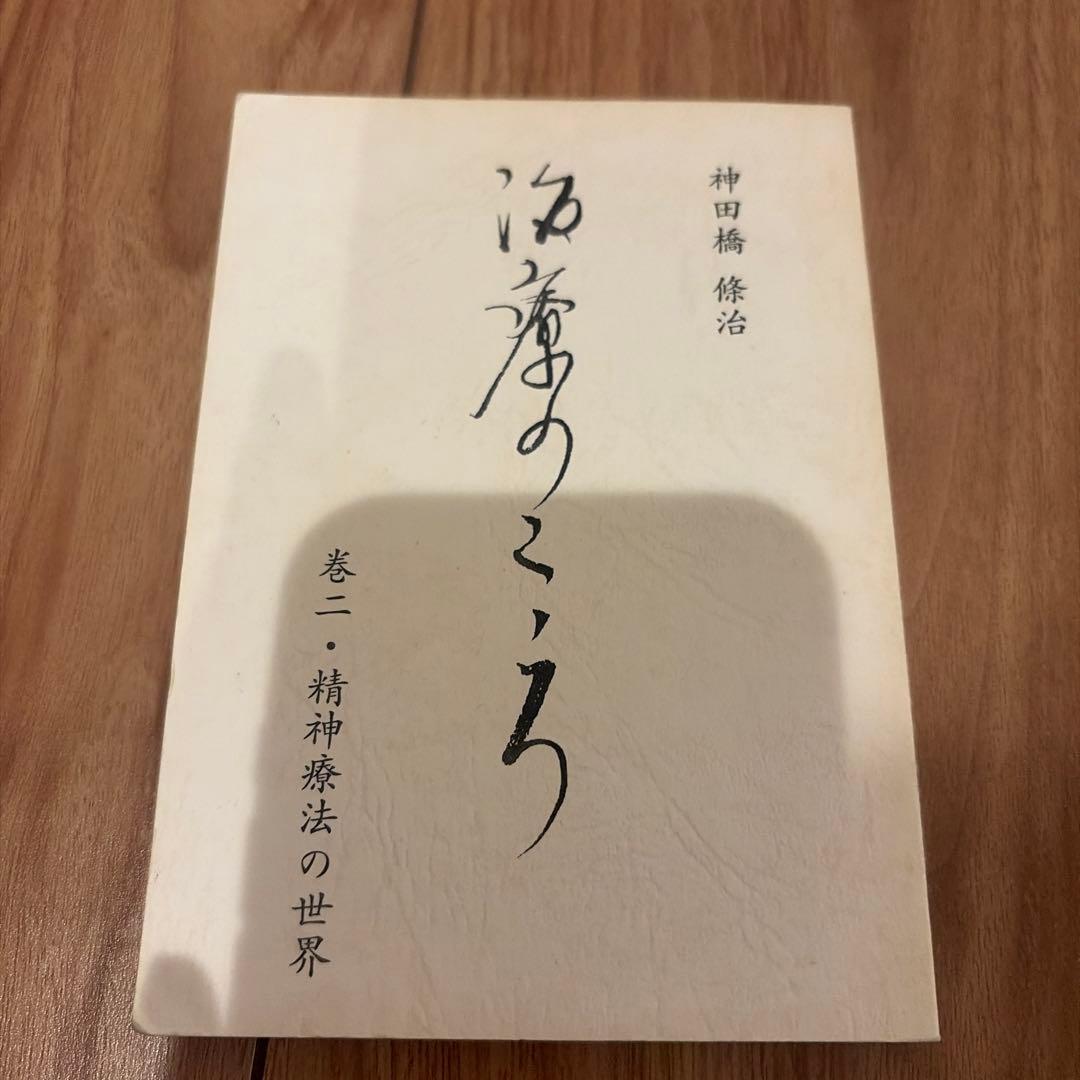 神田橋 條治
治療のこころ
巻二・精神療法の世界